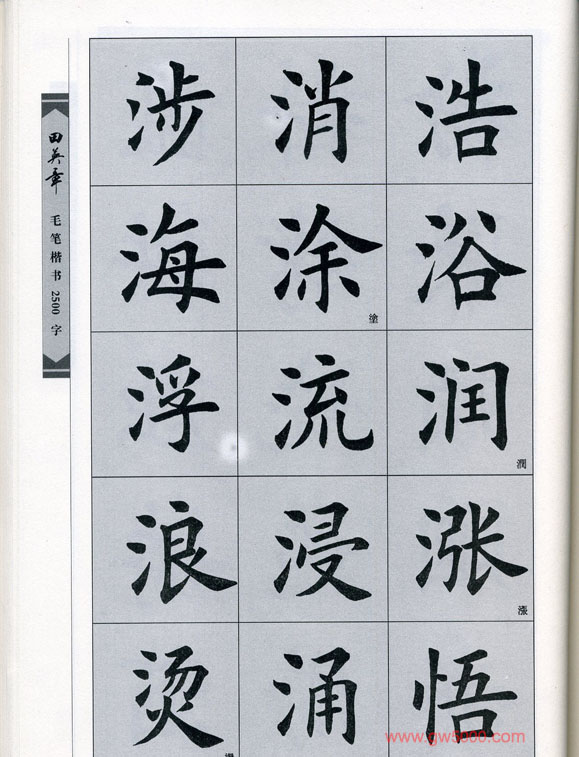 田英章 毛笔楷书 2500 字
涉 消 浩
海 涂 浴
塗
浮 流 润
潤
浪 浸 涨
漲
烫 涌 悟
www.gw5000.com